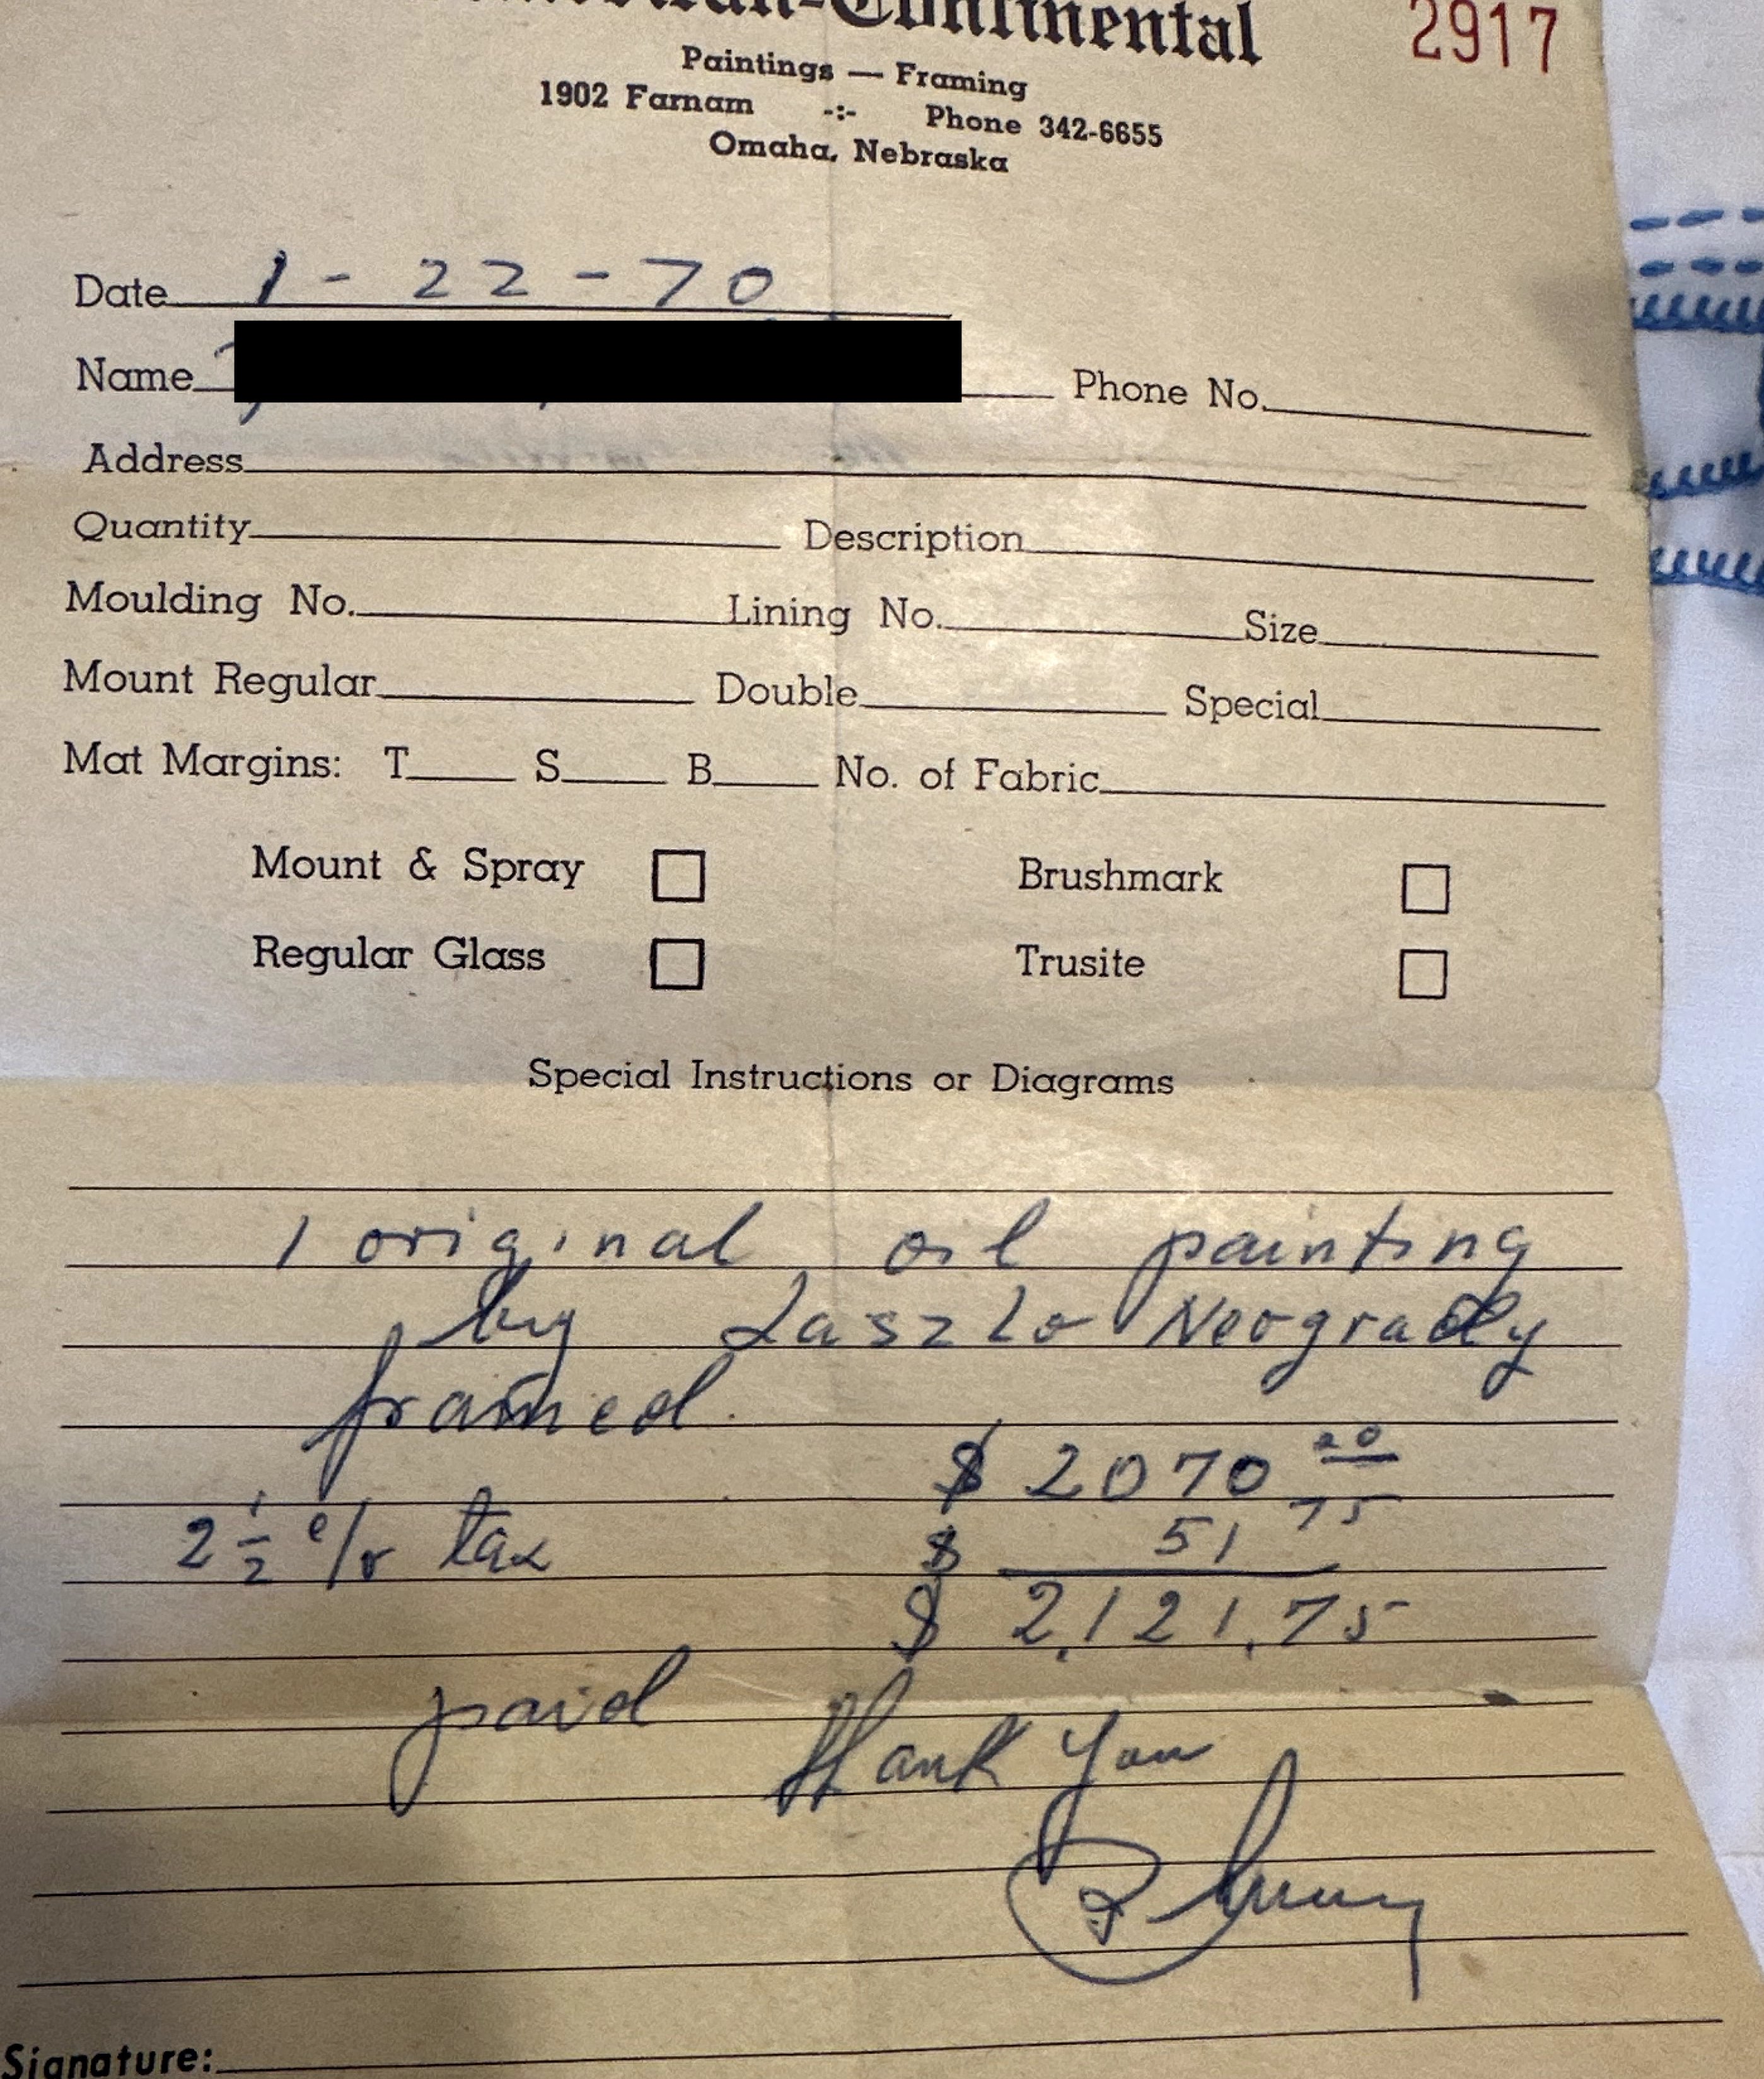 -Continental
2917
Paintings — Framing
1902 Farnam -:- Phone 342-6655
Omaha, Nebraska
Date 1 - 22 - 70
Name Phone No.
Address
Quantity Description
Moulding No. Lining No. Size
Mount Regular Double Special
Mat Margins: T S B No. of Fabric
Mount & Spray Brushmark
Regular Glass Trusite
Special Instructions or Diagrams
1 original oil painting
by Laszlo Neogrady
framed.
$ 2070
2 1/2 % tax $ 51 75
$ 2,121.75
paid Thank you
Signature: